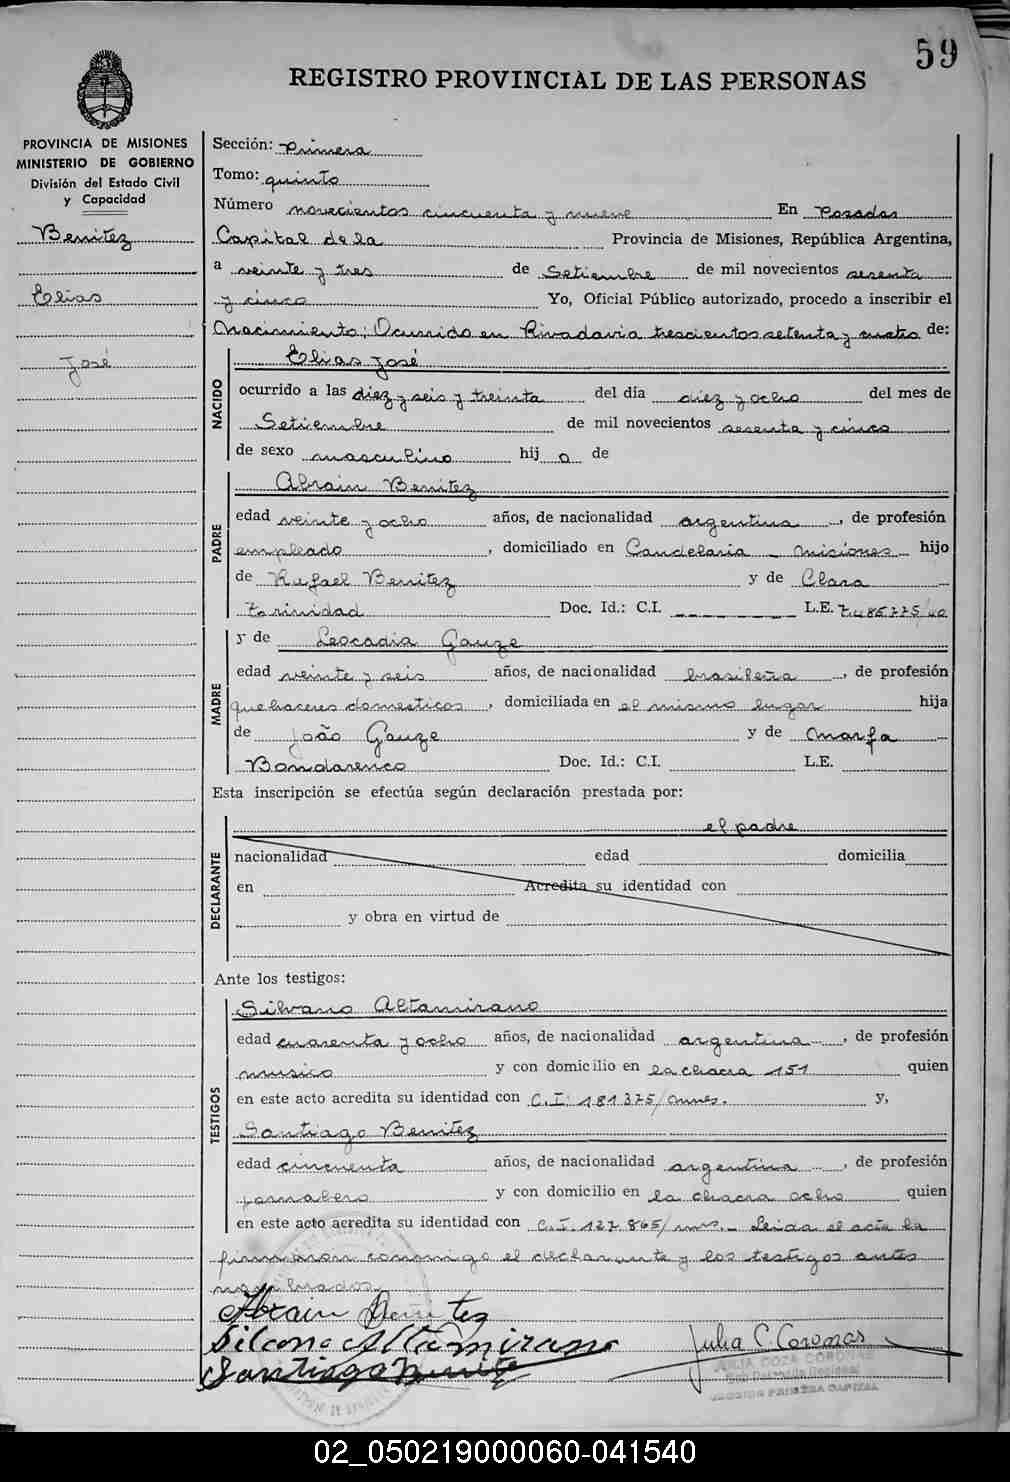 59
REGISTRO PROVINCIAL DE LAS PERSONAS
PROVINCIA DE MISIONES
MINISTERIO DE GOBIERNO
División del Estado Civil
y Capacidad
Benitez
Elias
José
Sección: Primera
Tomo: quinto
Número novecientos cincuenta y nueve En Posadas
Capital de la Provincia de Misiones, República Argentina,
a veinte y tres de Setiembre de mil novecientos sesenta
y cinco Yo, Oficial Público autorizado, procedo a inscribir el
Nacimiento; Ocurrido en Rivadavia trescientos setenta y cuatro de:
NACIDO
Elias José
ocurrido a las diez y seis y treinta del día diez y ocho del mes de
Setiembre de mil novecientos sesenta y cinco
de sexo masculino hij o de
PADRE
Abrain Benitez
edad veinte y ocho años, de nacionalidad argentina, de profesión
empleado, domiciliado en Candelaria - Misiones hijo
de Rafael Benitez y de Clara
Trinidad Doc. Id.: C.I. L.E.
MADRE
y de Leocadia Gauze
edad veinte y seis años, de nacionalidad brasileña, de profesión
quehaceres domesticos, domiciliada en el mismo lugar hija
de João Gauze y de Marfa
Bondarenco Doc. Id.: C.I. L.E.
Esta inscripción se efectúa según declaración prestada por:
DECLARANTE
el padre
nacionalidad edad domicilia
en Acredita su identidad con
y obra en virtud de
Ante los testigos:
TESTIGOS
Silvano Altamirano
edad cuarenta y ocho años, de nacionalidad argentina, de profesión
musico y con domicilio en la chacra 151 quien
en este acto acredita su identidad con C.I. 181375/mnes. y,
Santiago Benitez
edad cincuenta años, de nacionalidad argentina, de profesión
jornalero y con domicilio en la chacra ocho quien
en este acto acredita su identidad con C.I. 127.865/mns. Leida el acta la
firmaron conmigo el declarante y los testigos antes
nombrados.
Abrain Benitez
Silvano Altamirano
Santiago Benitez
Julia C. Coronas
02_050219000060-041540